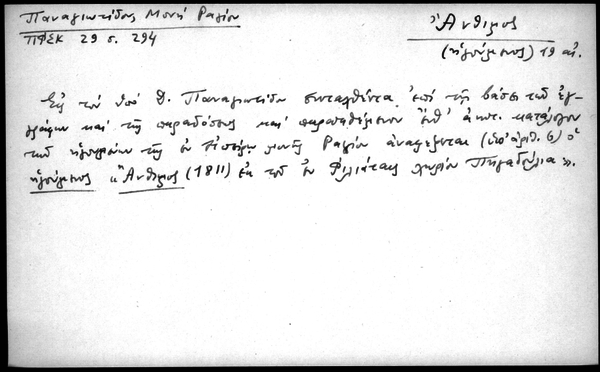 Παναγιωτίδου Μονή Ραγίου
ΠΦΣΚ 29 σ. 294
Ἄνθιμος
(ἡγούμενος) 19 αἰ.
Εἰς τὸν ὑπὸ Θ. Παναγιωτίδου συνταχθέντα, ἐπὶ τῇ βάσει τῶν ἐγ-
γράφων καὶ τῆς παραδόσεως καὶ παρατιθέμενον κατάλογον
τῶν ἡγουμένων τῆς ἐν μονῆς Ραγίου ἀναφέρεται (ὑπ' ἀριθ. 6) ὁ
ἡγούμενος "Ἄνθιμος (1811) ἐκ τοῦ ἐν Φιλιάταις χωρίου Πηγαδούλια".